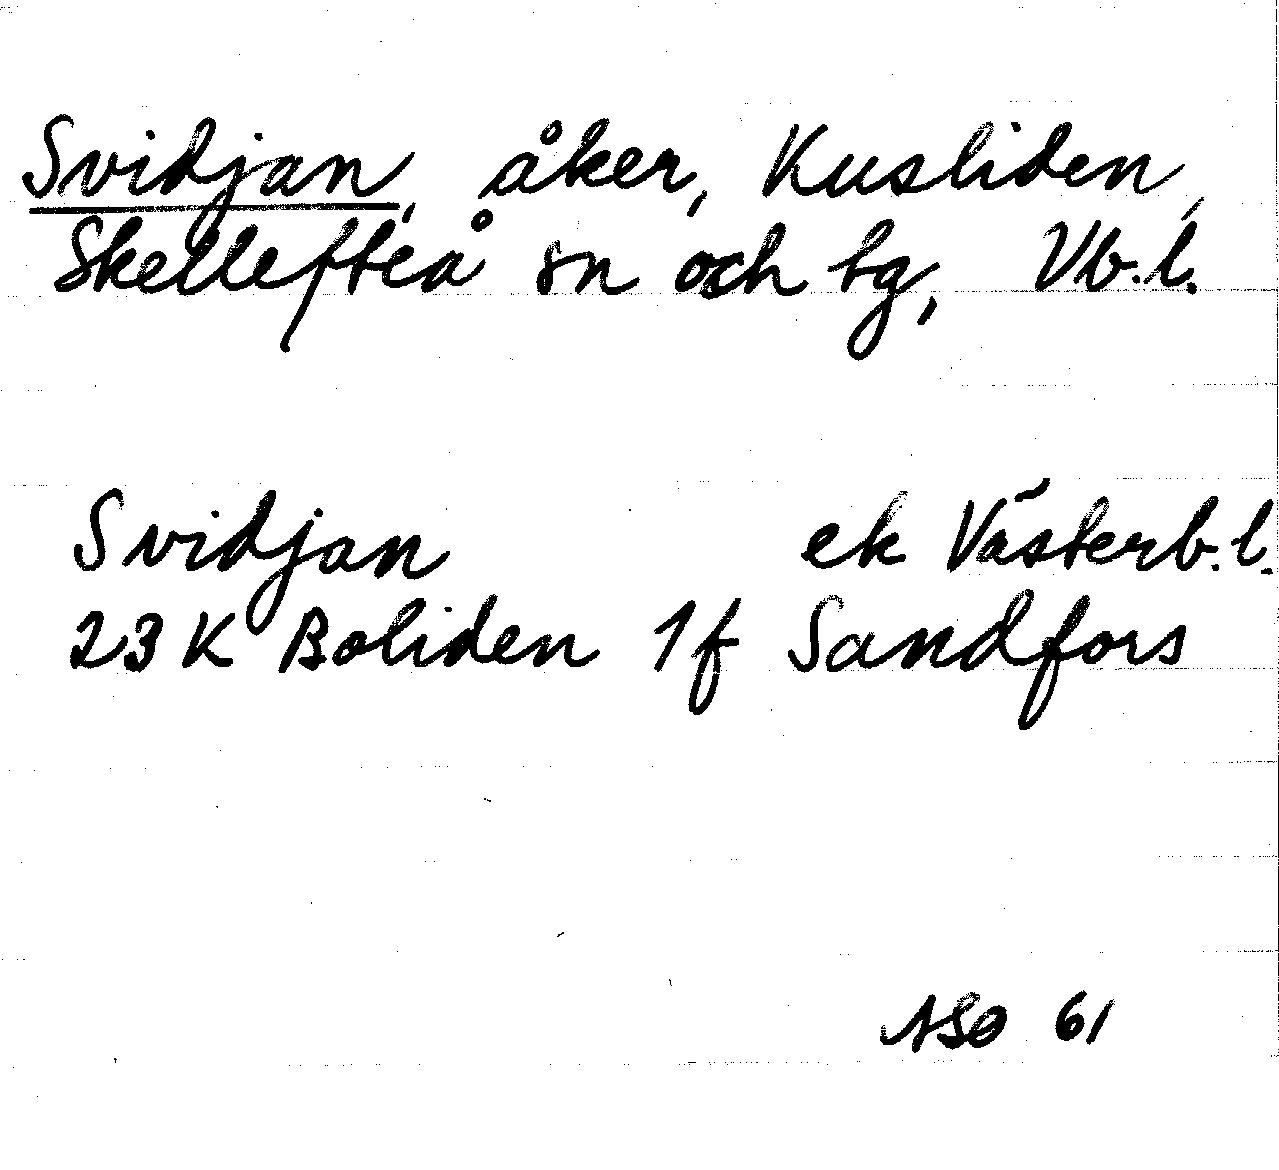 Svidjan, åker, Kusliden,
Skellefteå sn och tg, Vb.l.
Svidjan ek Västerb.l.
23 K Boliden 1f Sandfors
ASO 61